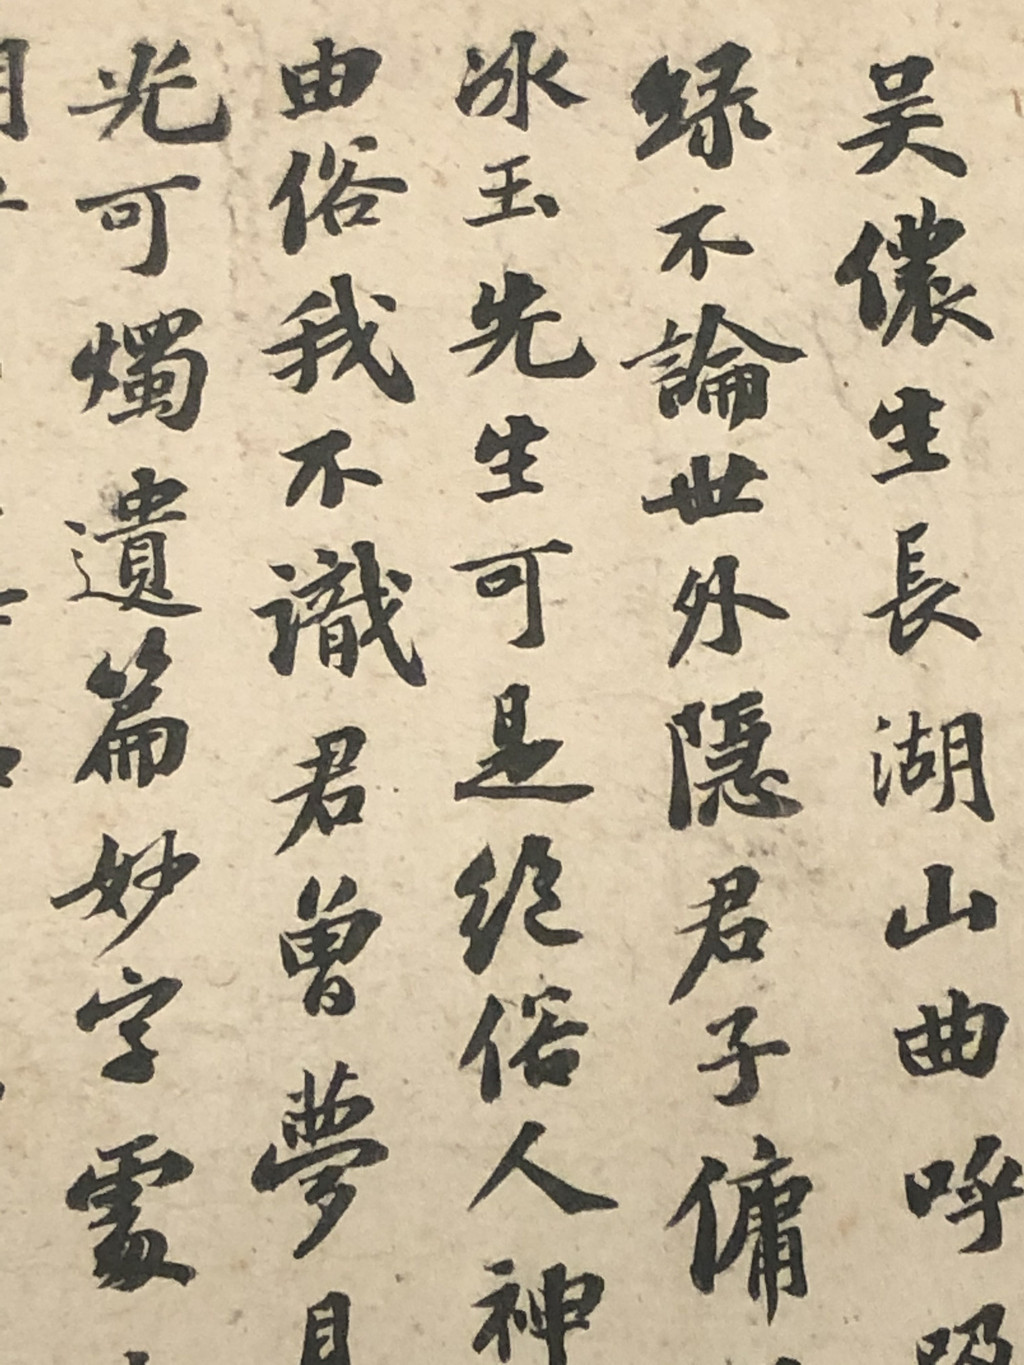 吴儂生長湖山曲呼吸
緑不論世外隱君子傭
冰玉先生可是絕俗人神
由俗我不識君曾夢見
光可燭遺篇妙字處